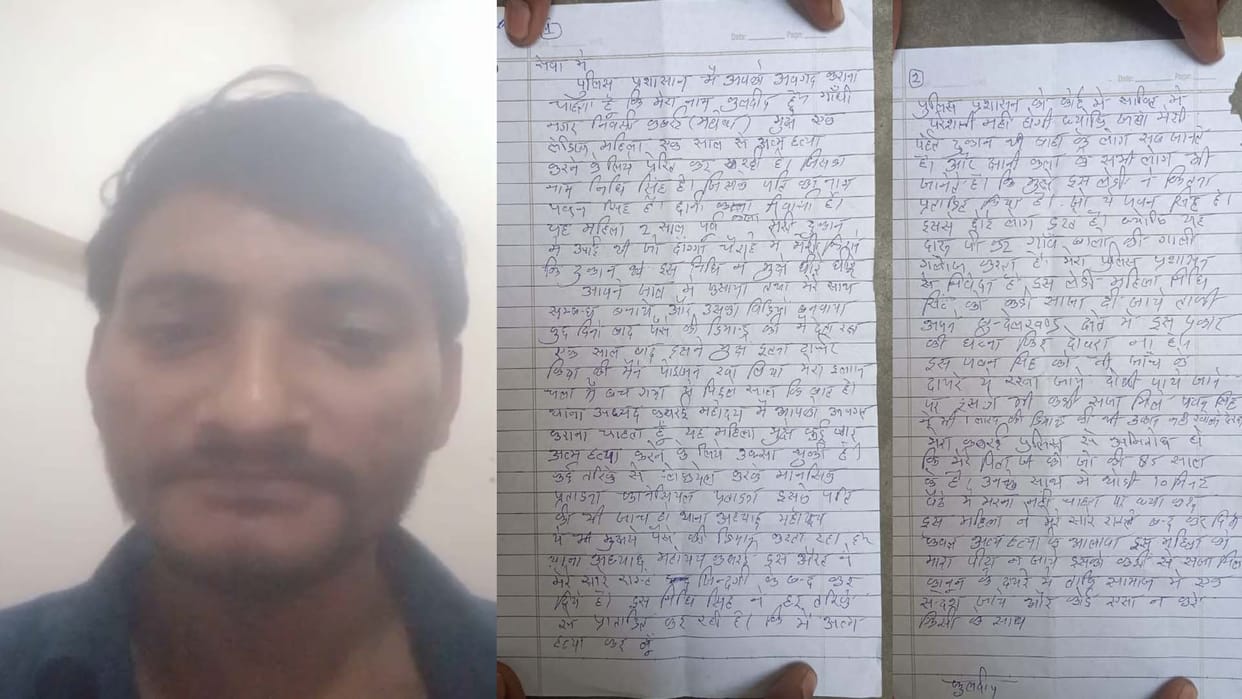 ①
Date: Page:
सेवा में
पुलिस प्रशासन में आपको अवगत कराना
चाहता हूँ कि मेरा नाम कुलदीप है गाँधी
नगर निवासी कबरई (महोबा) मुझे एक
लेडिज महिला एक साल से आत्म हत्या
करने के लिये प्रेरित कर रही है। जिसका
नाम निधि सिंह है। जिसके पति का नाम
पवन सिंह है। दोनों निवासी है।
यह महिला 2 साल पहले मेरी दुकान
में आई थी जो चौराहे में मेरी
कि दुकान है इस निधि ने मुझे धीरे धीरे
अपने जाल में फसाया तथा मेरे साथ
सम्बन्ध बनाये और उसका विडियो बनवाया
कुछ दिनो बाद पैसे की डिमान्ड की में देता रहा
एक साल बाद इसने मुझे इतना टार्चर
किया की मैने पाइजन खा लिया मेरा इलाज
चला में बच गया ये पिछले साल कि बात है।
थाना अध्यक्ष कबरई महोदय में आपको अवगत
कराना चाहता हूँ यह महिला मुझे कई बार
आत्म हत्या करने के लिये उकसा चुकी है।
कई तरिके से करके मानसिक
प्रताडना फानेसियल प्रताडना इसके पति
की भी जांच हो थाना अध्यक्ष महोदय
ये भी मुझसे पैसे की डिमांड करता रहा
थाना अध्यक्ष महोदय कबरई इस औरत ने
मेरे सारे रास्ते जिन्दगी के बन्द कर
दिये है। इस निधि सिंह ने हर तरिके
से प्रताडित कर रही है। कि में आत्म
हत्या कर लूँ
②
Date: Page:
पुलिस प्रशासन को कोई भी साबित में
परेशानी नही होगी क्योंकि जहा मेरी
पहले दुकान थी वहा के लोग सब जानते
है। और के सभी लोग भी
जानते है। कि मुझे इस लेडी ने कितना
प्रताडित किया है। जो ये पवन सिंह है।
इससे लोग डरते है। क्योंकि यह
दारू पी कर गाँव वालो को गाली
गलौज करता है। मेरा पुलिस प्रशासन
से निवेदन है। इस लेडी महिला निधि
सिंह को कडी सजा दी जाये ताकी
अपने बुन्देलखण्ड क्षेत्र में इस प्रकार
की घटना फिर दोबारा ना हो
इस पवन सिंह को भी जाँच के
दायरे में रखा जाये दोषी पाये जाने
पर इसे भी कडी सजा मिले पवन सिंह
ने भी 1 लाख की डिमांड की थी
मेरा कबरई पुलिस से है
कि मेरे पिता जी को जो की 85 साल
के है। उनके साथ में थाडी 10 मिनट
बैठे में मरना नही चाहता पर क्या करू
इस महिला ने मेरे सारे रास्ते बन्द कर दिये
केवल आत्म हत्या के आलावा इस महिला को
मारा पीटा न जाये इसको कडी से सजा मिले
कानून के दायरे में ताकि सामाज में एक
संदेश जाये और कोई ऐसा न करे
किसी के साथ
कुलदीप